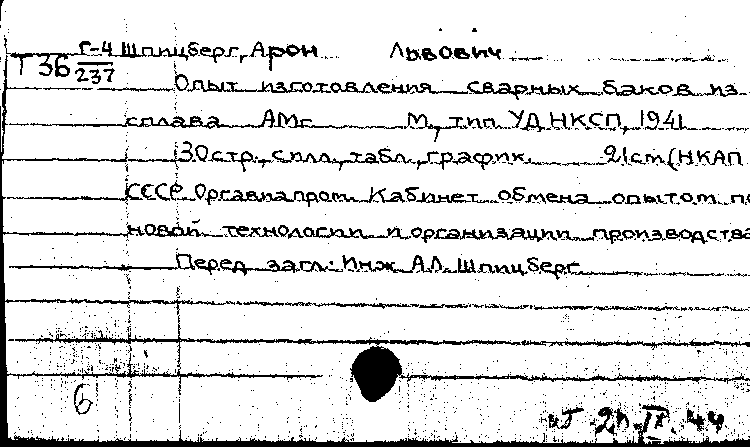 Г-4 Шпицберг, Арон Львович
Т 36 237
Опыт изготовления сварных баков из
сплава АМг М, тип УД НКСП, 1941
30 стр., с илл., табл., график. 21 cm (НКАП
СССР Оргавиапром. Кабинет обмена опытом по
новой технологии и организации производства
Перед загл.: Инж А.Л. Шпицберг
6
IX. 44